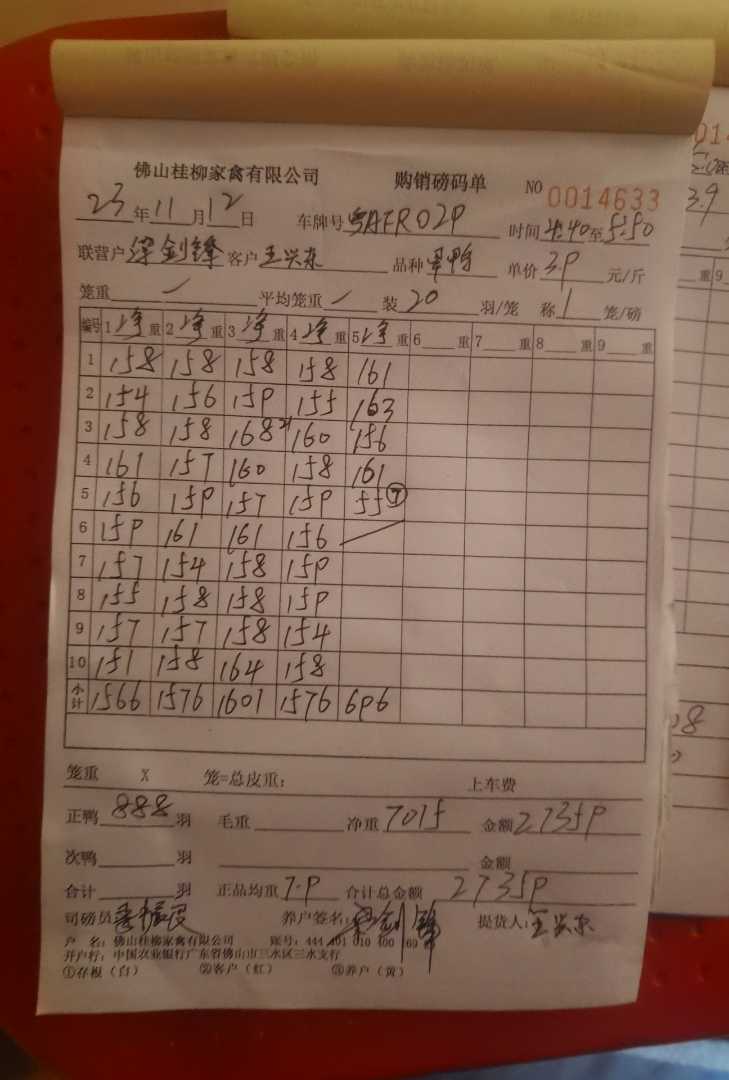 佛山桂柳家禽有限公司 购销磅码单 NO 0014633
23年11月12日 车牌号粤AFR029 时间4:40至5:50
联营户梁剑锋 客户王兴东 品种 鸭 单价3.9元/斤
笼重 / 平均笼重 / 装20羽/笼 称1笼/磅
编号 1净重 2净重 3净重 4净重 5净重 6 重 7 重 8 重 9 重
1 158 158 158 158 161
2 154 156 159 155 163
3 158 158 168 21 160 156
4 161 157 160 158 161
5 156 159 157 159 55 ⑦
6 159 161 161 156
7 157 154 158 159
8 155 158 158 159
9 157 157 158 154
10 151 158 164 158
小计 1566 1576 1601 1576 696
笼重 X 笼=总皮重: 上车费
正鸭888羽 毛重 净重7015 金额27359
次鸭 羽 金额
合计 羽 正品均重7.9 合计总金额27359
司磅员 养户签名:梁剑锋 提货人:王兴东
户 名: 佛山桂柳家禽有限公司 账号: 444 401 010 400 69
开户行: 中国农业银行广东省佛山市三水区三水支行
①存根（白） ②客户（红） ③养户（黄）
3.9
重 9